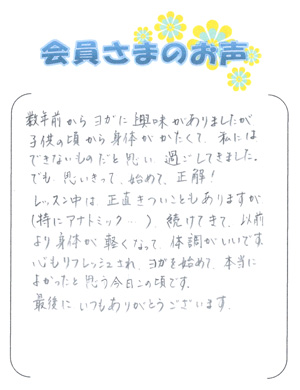 会員さまのお声
数年前からヨガに興味がありましたが
子供の頃から身体がかたくて、私には
できないものだと思い 過ごしてきました。
でも 思いきって、始めて、正解！
レッスン中は、正直きついこともありますが
(特にアナトミック…)、続けてきて、以前
より身体が 軽くなって、体調がいいです。
心もリフレッシュされ、ヨガを始めて、本当に
よかったと思う今日この頃です。
最後に いつもありがとうございます。